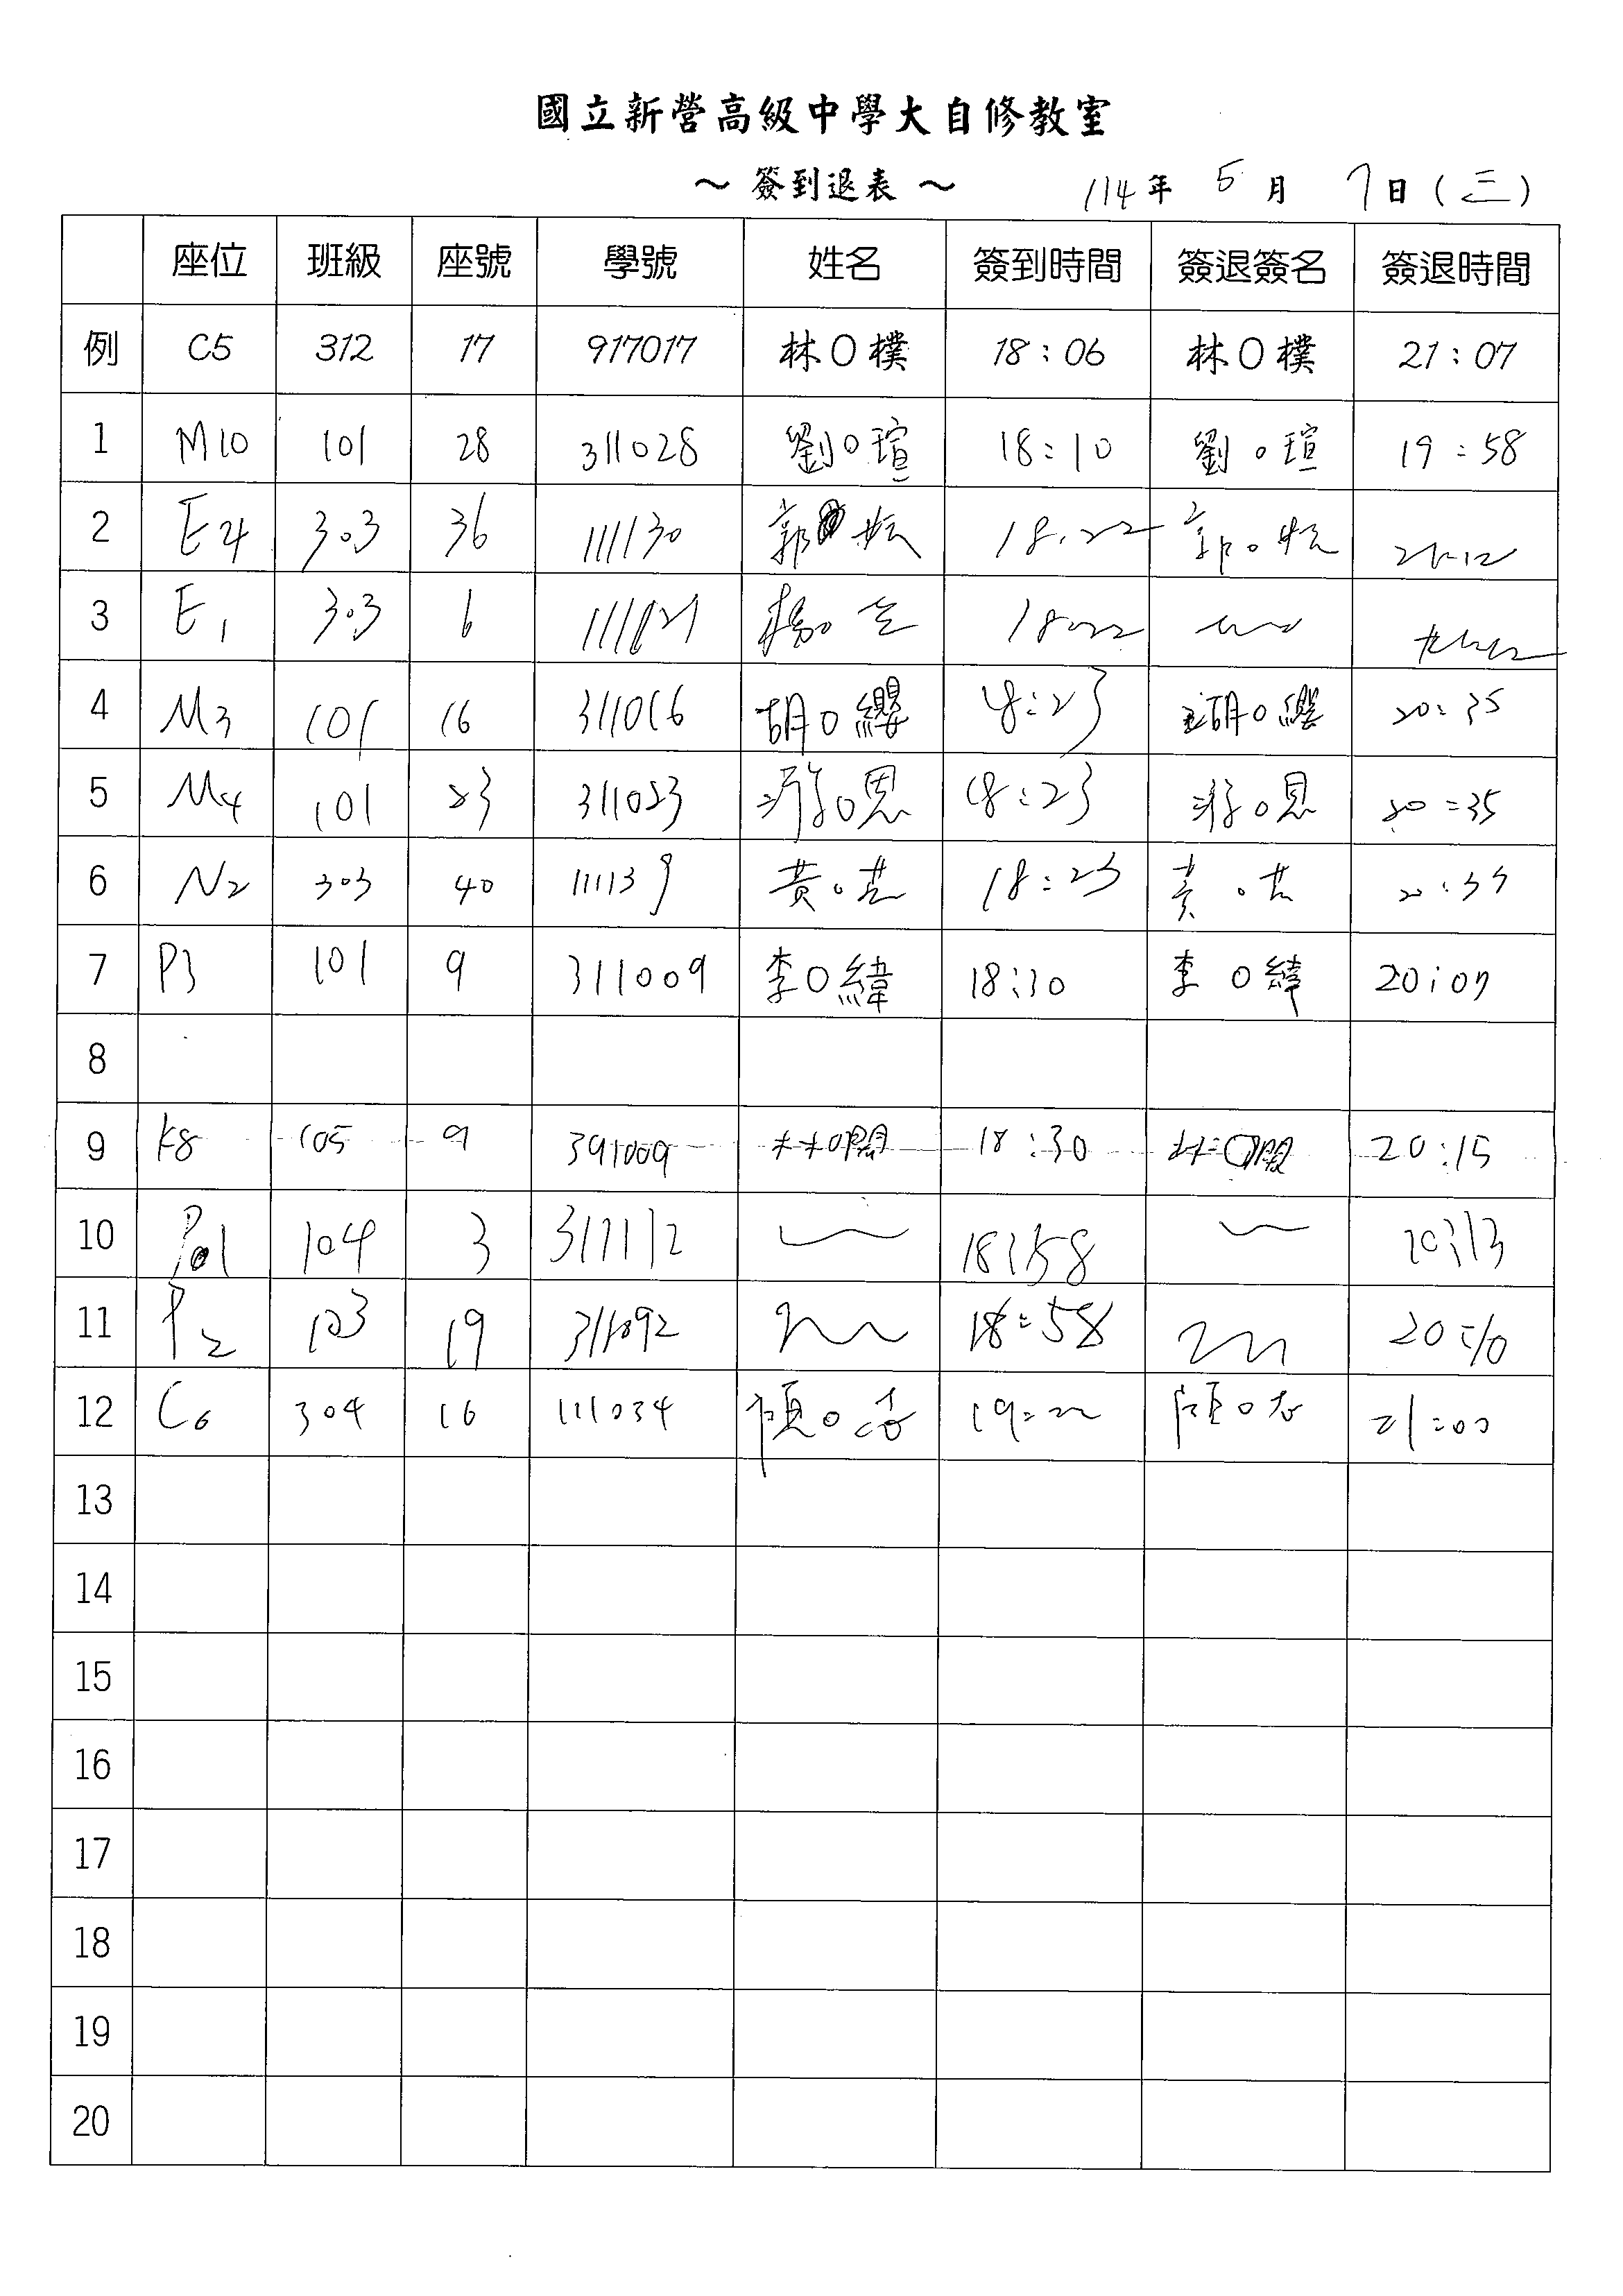 國立新營高級中學大自修教室
～ 簽到退表 ～ 114年 5月 7日(三)
座位 班級 座號 學號 姓名 簽到時間 簽退簽名 簽退時間
例 C5 312 17 917017 林O樸 18:06 林O樸 21:07
1 M10 101 28 311028 劉O瑄 18:10 劉O瑄 19:58
2 E4 303 36 111130 郭 18:22 郭O 21:12
3 E1 303 6 楊O 18:22
4 M3 101 16 311016 胡O纓 18:23 胡O纓 20:35
5 M4 101 23 311023 游O恩 18:23 游O恩 20:35
6 N2 303 40 111139 黃O芸 18:23 黃O芸 20:35
7 P3 101 9 311009 李O緯 18:30 李O緯 20:07
8
9 K8 105 9 391009 林O閎 18:30 林O閎 20:15
10 P1 104 3 311112 18:58 20:13
11 P2 103 19 311092 18:58 20:10
12 C6 304 16 111034 顧O 19:22 顧O 21:00
13
14
15
16
17
18
19
20